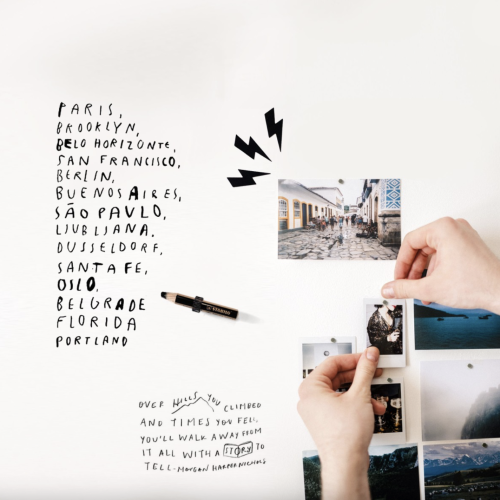 PARIS,
BROOKLYN,
BELO HORIZONTE,
SAN FRANCISCO,
BERLIN,
BUENOS AIRES,
SÃO PAULO,
LJUBLJANA.
DUSSELDORF,
SANTA FE,
OSLO.
BELGRADE
FLORIDA
PORTLAND
OVER HILLS YOU CLIMBED
AND TIMES YOU FELL,
YOU'LL WALK AWAY FROM
IT ALL WITH A STORY TO
TELL-MORGAN HARPER NICHOLS